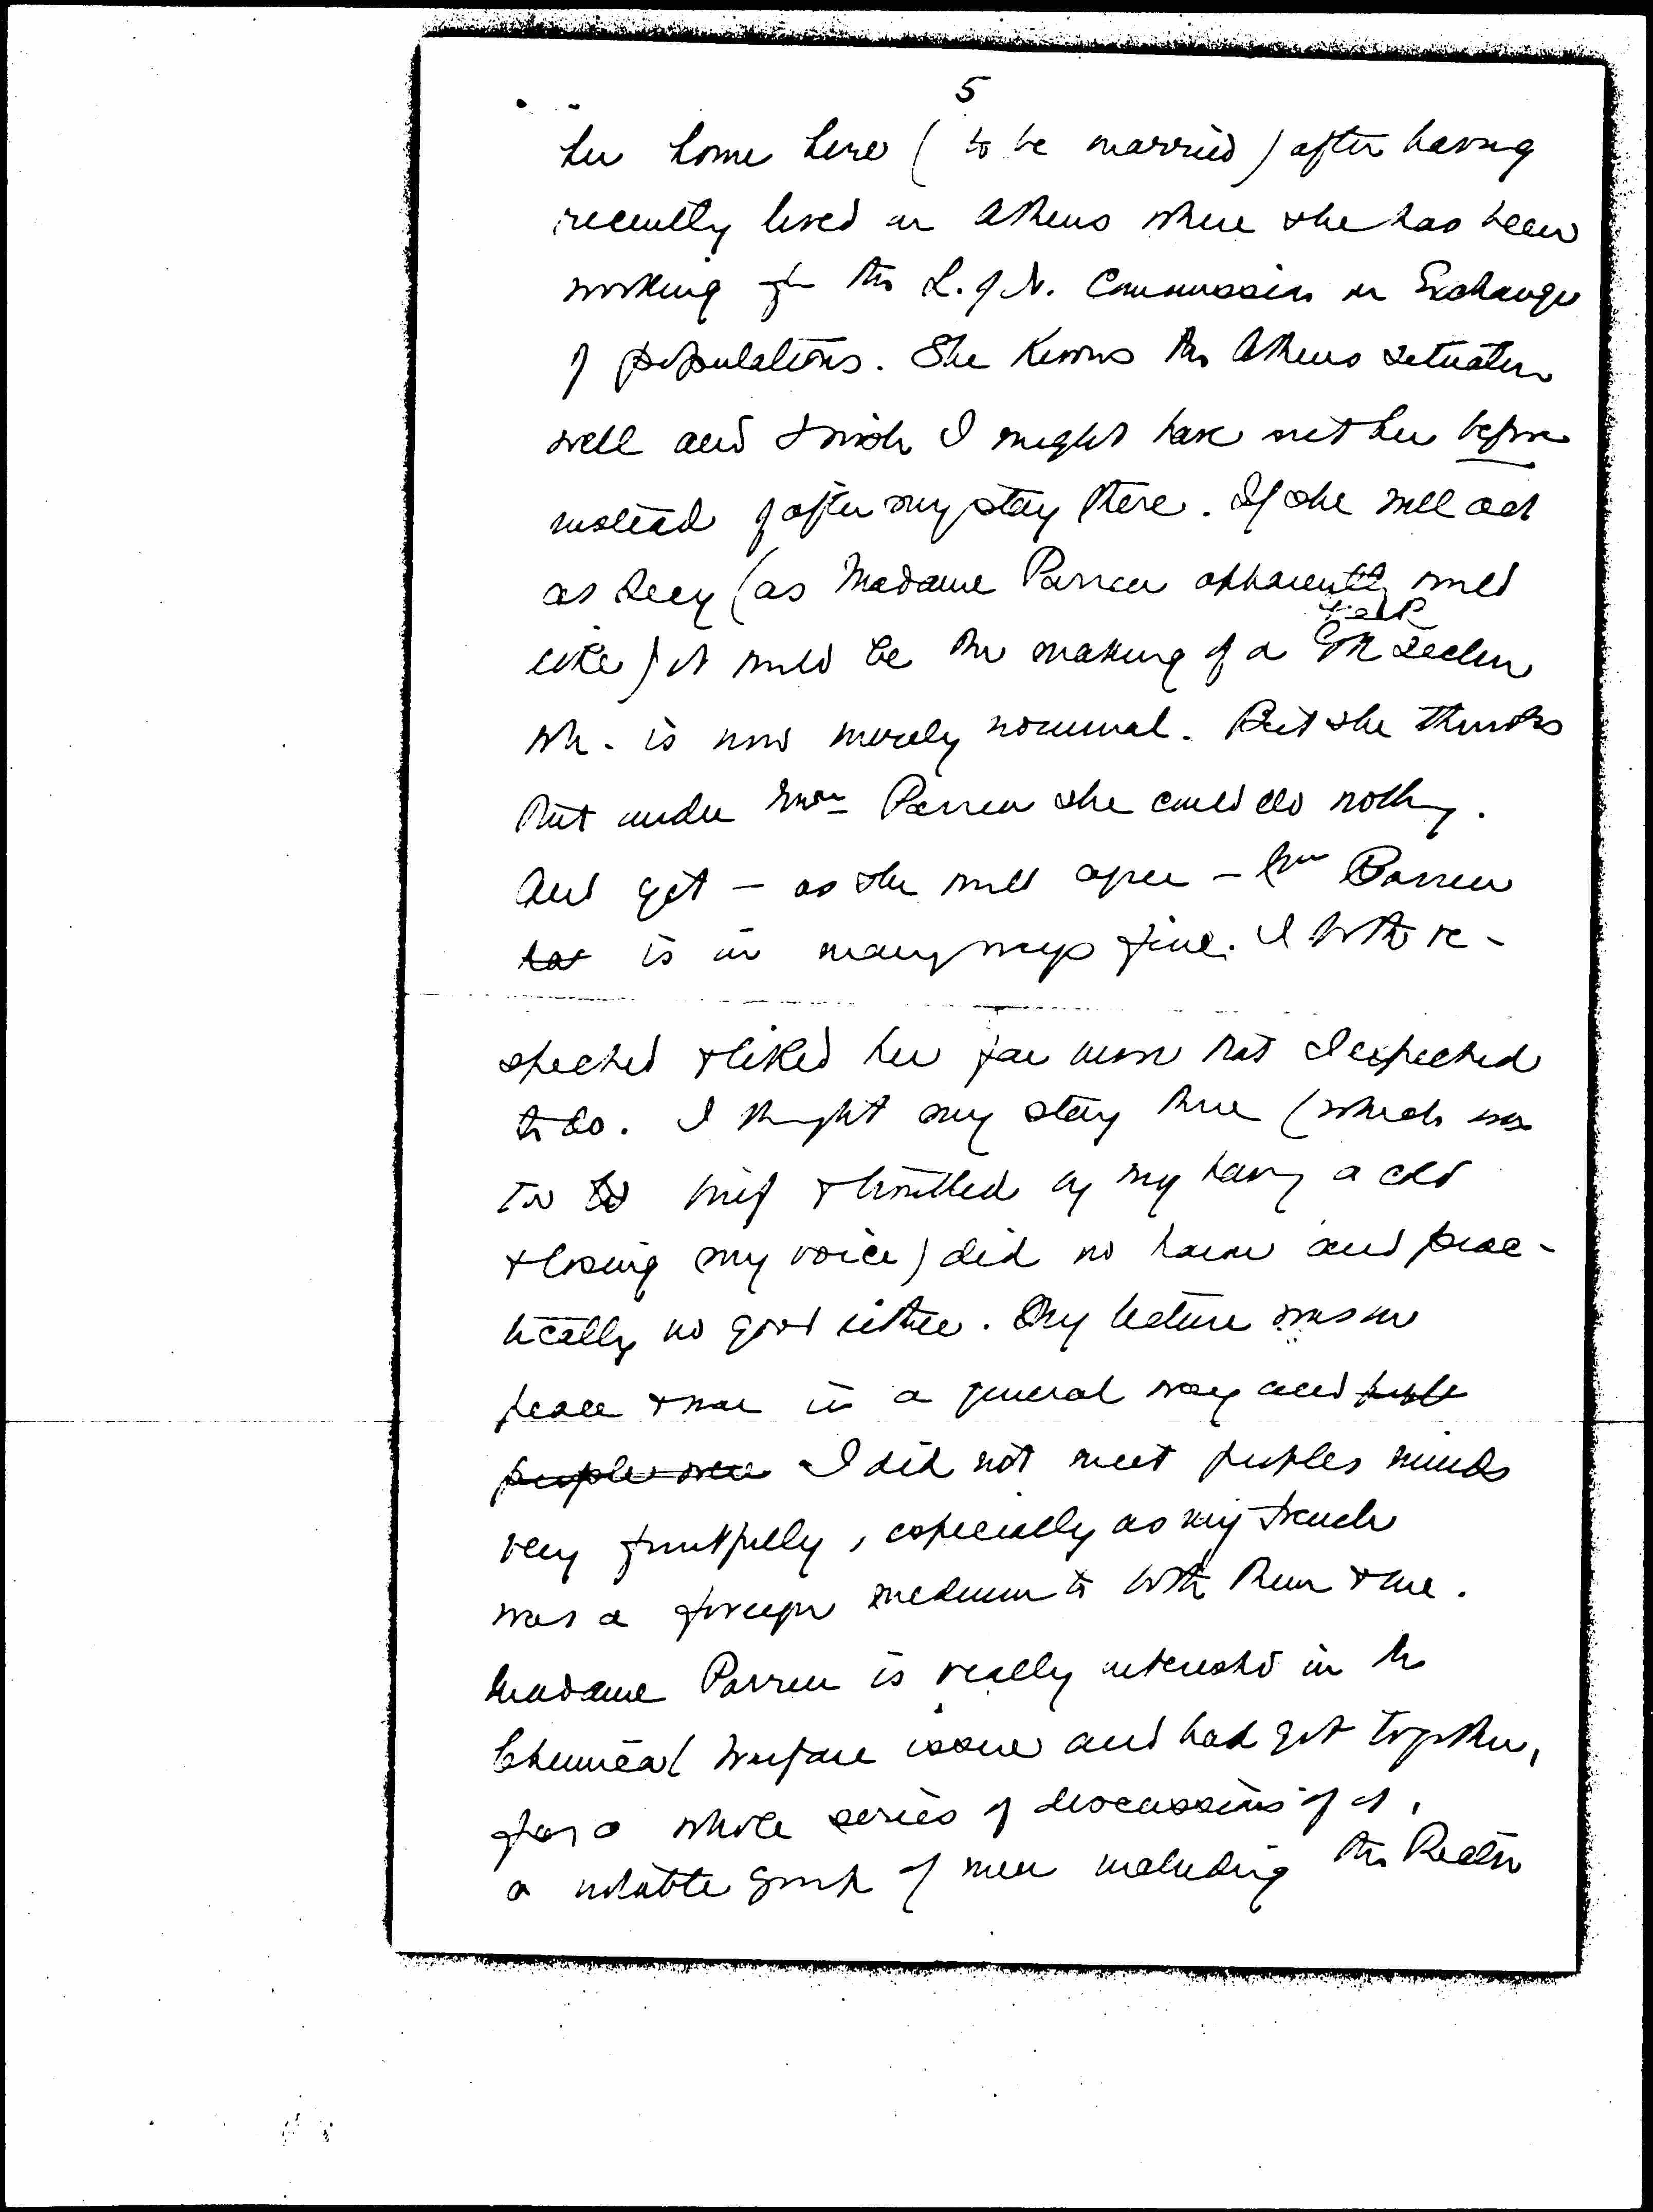 5
her home here (to be married) after having
recently lived in Athens where she has been
working for the L. of N. Commission on Exchange
of populations. She knows the Athens situation
well and I wish I might have met her before
instead of after my stay there. If she will act
as Secy (as Madame Parren apparently would
like) it would be the making of a Gk Section
wh. is now merely nominal. But she thinks
that under Mme Parren she could do nothing.
And yet – as she will agree – Mme Parren
has is in many ways fine. I both re-
spected & liked her far more that I expected
to do. I thought my stay there (which was
too brief & limited by my having a cold
& losing my voice) did no harm and prac-
tically no good either. My lecture was on
peace & war in a general way and people
people were I did not meet peoples minds
very fruitfully, especially as my French
was a foreign medium to both them & me.
Madame Parren is really interested in the
Chemical Warfare issue and had got together,
for a whole series of discussions of it,
a notable group of men including the Rector